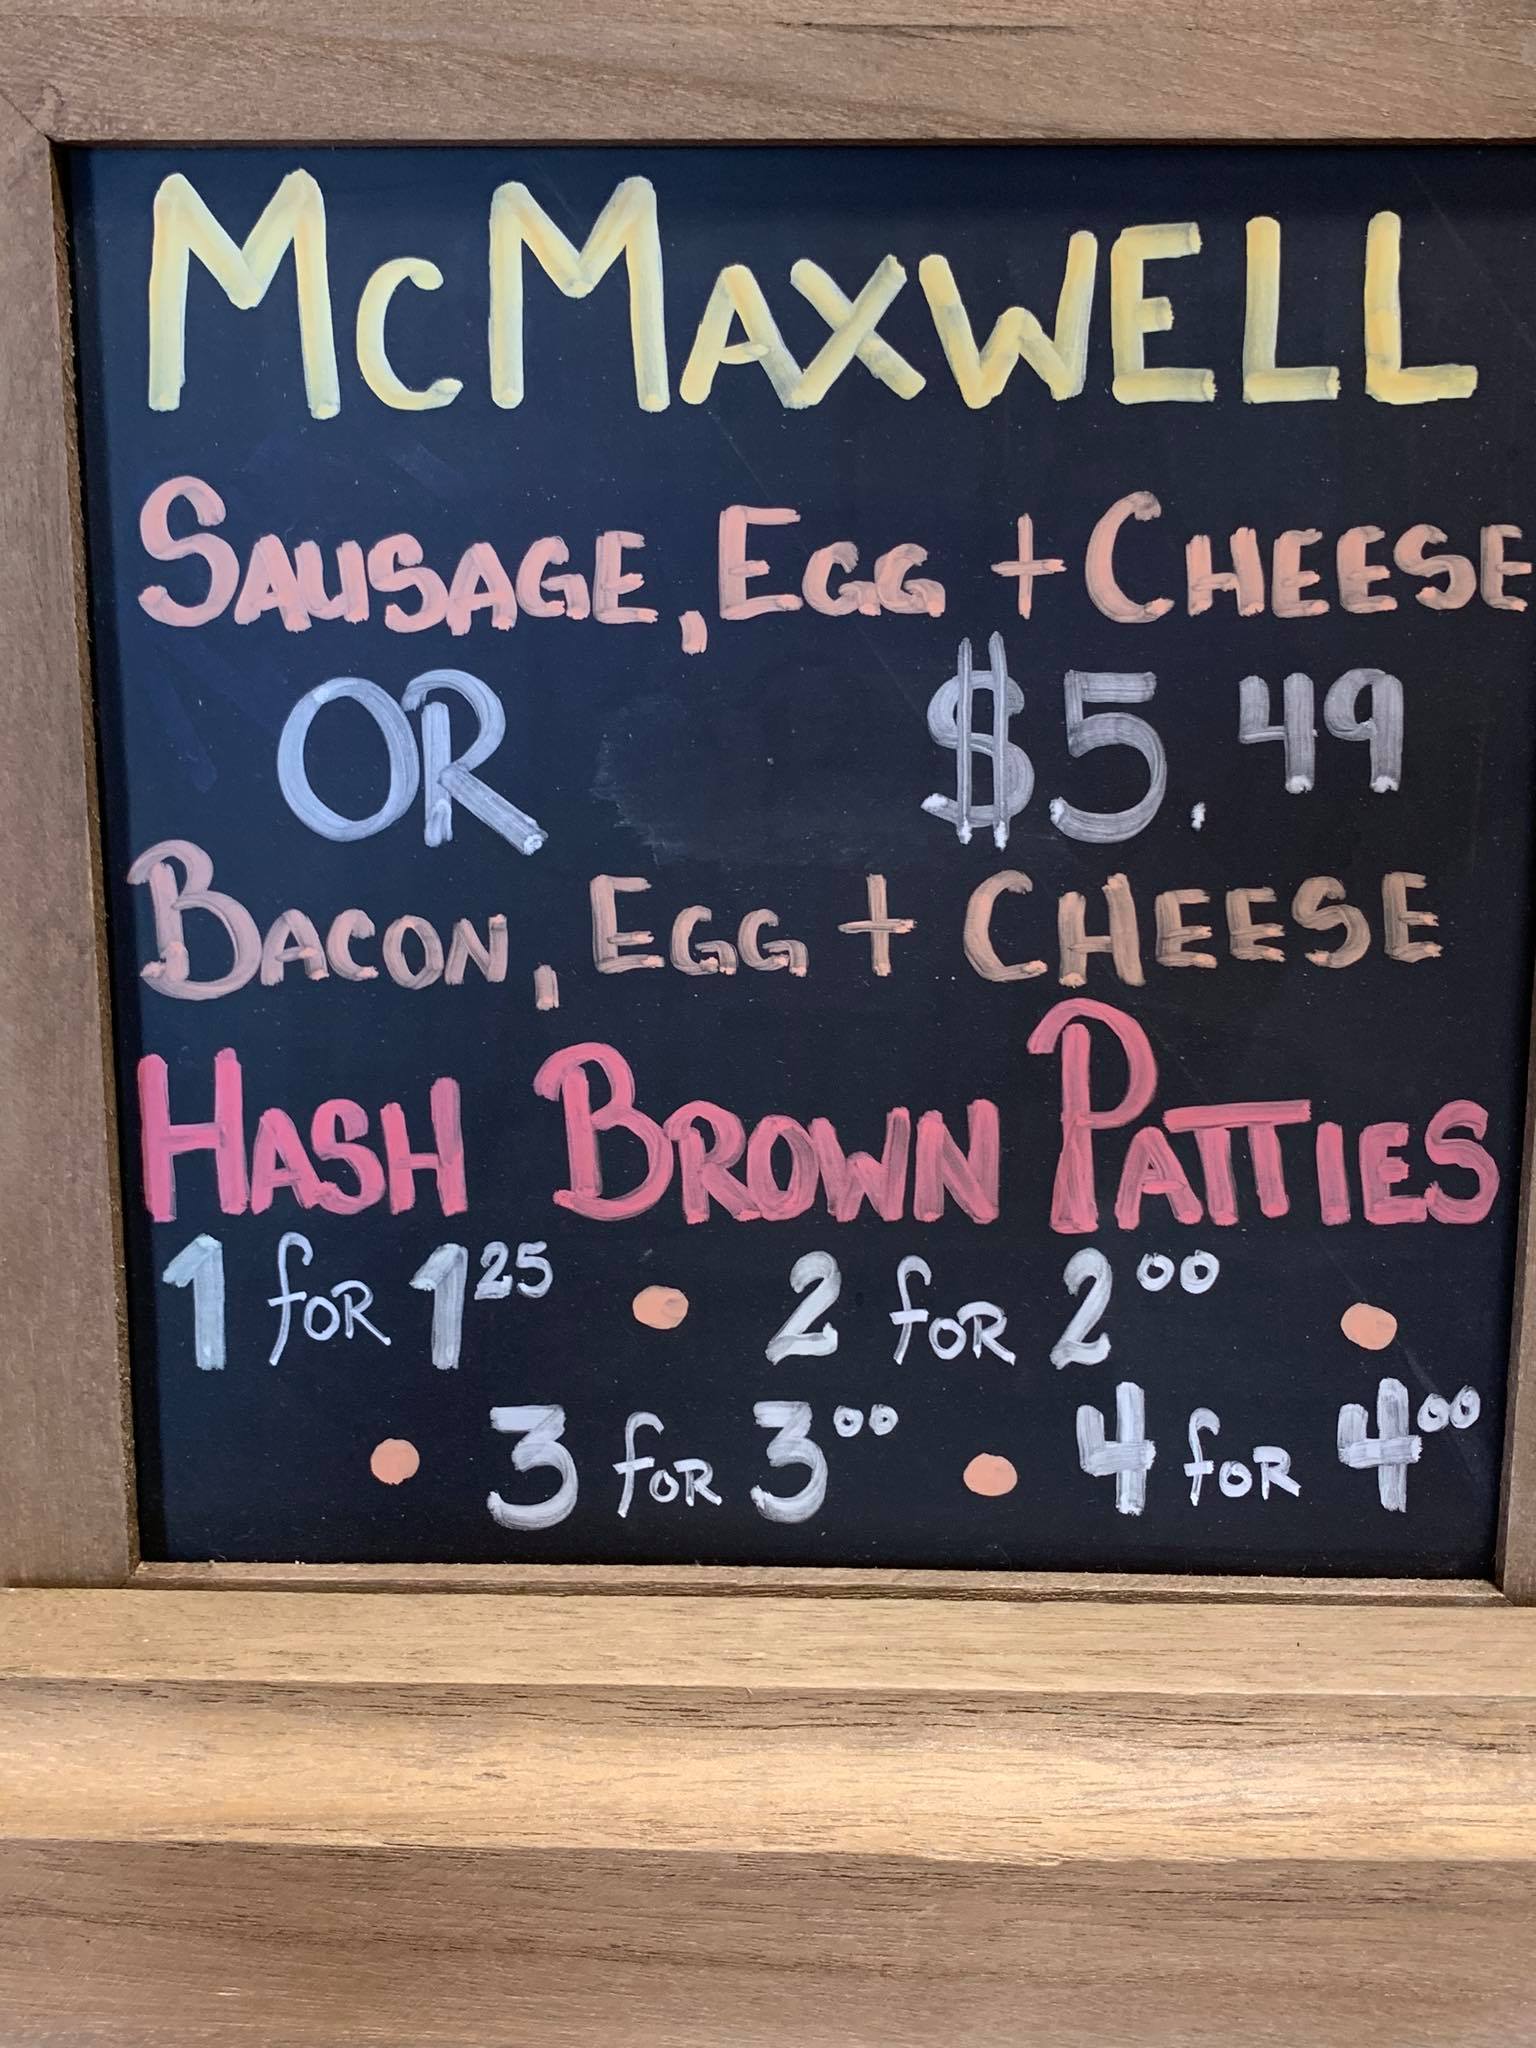 McMAXWELL
SAUSAGE, EGG + CHEESE
OR $5.49
BACON, EGG + CHEESE
HASH BROWN PATTIES
1 for 1.25 • 2 for 2.00 •
• 3 for 3.00 • 4 for 4.00